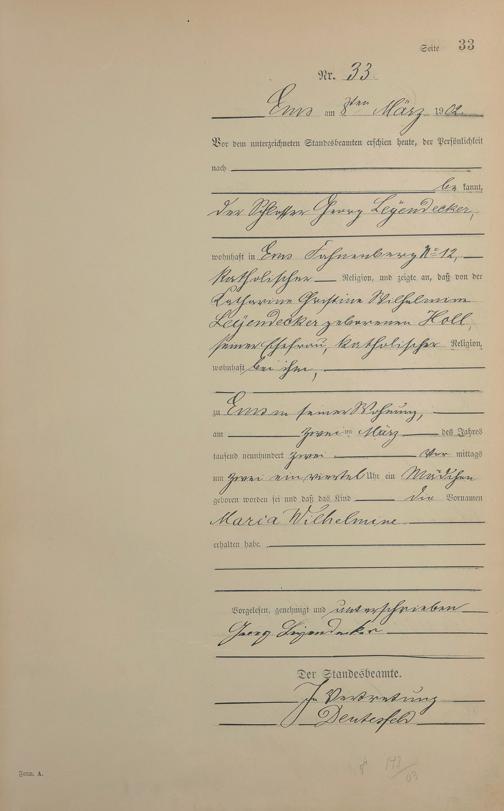 Seite 33
Nr. 33
Ems am 8ten März 1902
Vor dem unterzeichneten Standesbeamten erschien heute, der Persönlichkeit
nach
be kannt,
der Schlosser Georg Leÿendecker,
wohnhaft in Ems Fahnenberg No 12,
katholischer Religion, und zeigte an, daß von der
Katharine Christine Wilhelmine
Leÿendecker geborenen Holl,
seiner Ehefrau, katholischer Religion,
wohnhaft bei ihm,
zu Ems in seiner Wohnung,
am zwei ten März des Jahres
tausend neunhundert zwei Vor mittags
um zwei ein viertel Uhr ein Mädchen
geboren worden sei und daß das Kind die Vornamen
Maria Wilhelmine
erhalten habe.
Vorgelesen, genehmigt und unterschrieben
Georg Leÿendecker
Der Standesbeamte.
In Vertretung
Form. A.